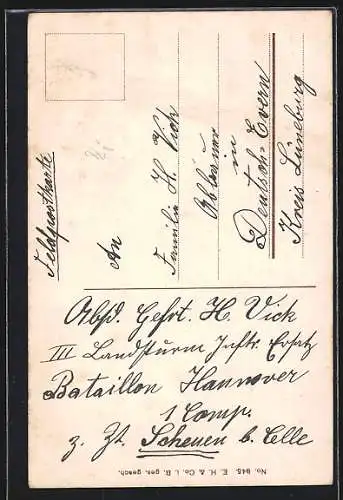 Feldpostkarte
An
Familie H. Vick
in
Deutsch-Evern
Kreis Lüneburg
Absd. Gefrt. H. Vick
III Landsturm Inftr. Ersatz
Bataillon Hannover
1 Comp.
z. Zt. Scheuen b. Celle
No. 945. E. H. & Co. i. B. ges. gesch.